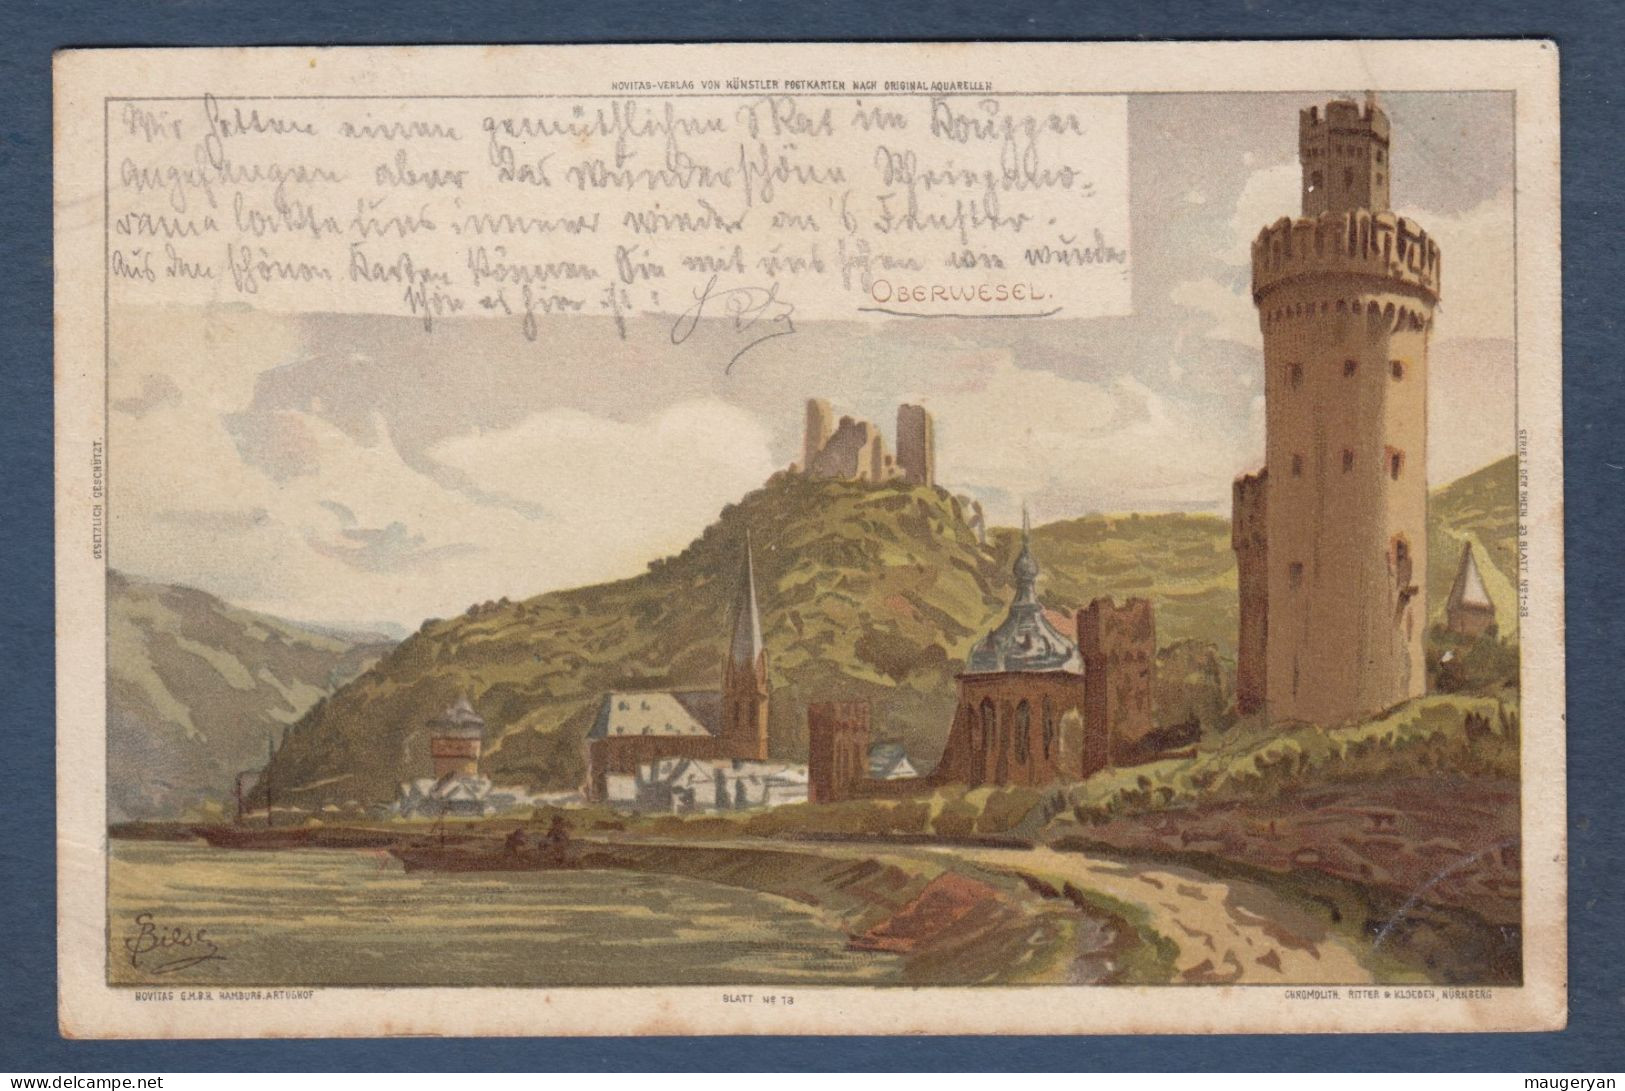 NOVITAS-VERLAG VON KÜNSTLER POSTKARTEN NACH ORIGINAL AQUARELLEN
Wir hatten einen gemüthlichen Skat im Kouppee
angefangen aber das wunderschöne
rama lockte uns immer wieder an's Fenster.
Aus den schönen Karten können Sie mit uns sehen wie wunder-
schön es hier ist!
OBERWESEL.
GESETZLICH GESCHÜTZT.
SERIE I DER RHEIN 33 BLATT Nº 1-33
Bilse
NOVITAS G.M.B.H. HAMBURG. ARTUSHOF
BLATT Nº 13
CHROMOLITH. RITTER & KLOEDEN, NÜRNBERG
www.delcampe.net
maugeryan